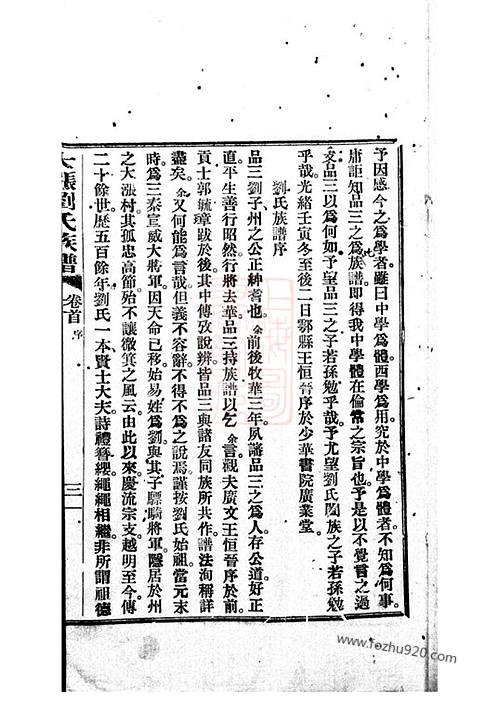 予因感今之為學者雖曰中學為體西學為用究於中學為體者不知為何事
庸詎知品三之為族譜即得我中學體在倫常之宗旨也予是以不覺言之過
文品三以為何如予望品三之子若孫勉乎哉予尤望劉氏闔族之子若孫勉
乎哉光緒壬寅冬至後二日鄠縣王恒晉序於少華書院廣業堂
劉氏族譜序
品三劉子州之公正紳耆也余前後牧華三年夙諳品三之為人存公道好正
直平生善行昭然行將去華品三持族譜以乞余言觀夫廣文王恒晉序於前
貢士郭毓璋跋於後其中傳攷說辨皆品三與諸友同族所共作譜法洵稱詳
盡矣余又何能為言哉但義不容辭不得不為之說焉謹按劉氏始祖當元末
時為三秦宣威大將軍因天命已移始易姓為劉與其子驃騎將軍隱居於州
之大漲村其孤忠高節殆不讓微箕之風云由此以來慶流宗支越明至今傳
二十餘世歷五百餘年劉氏一本賢士大夫詩禮簪纓繩繩相繼非所謂祖德
大漲劉氏族譜 卷首 序 三
www.fozhu920.com